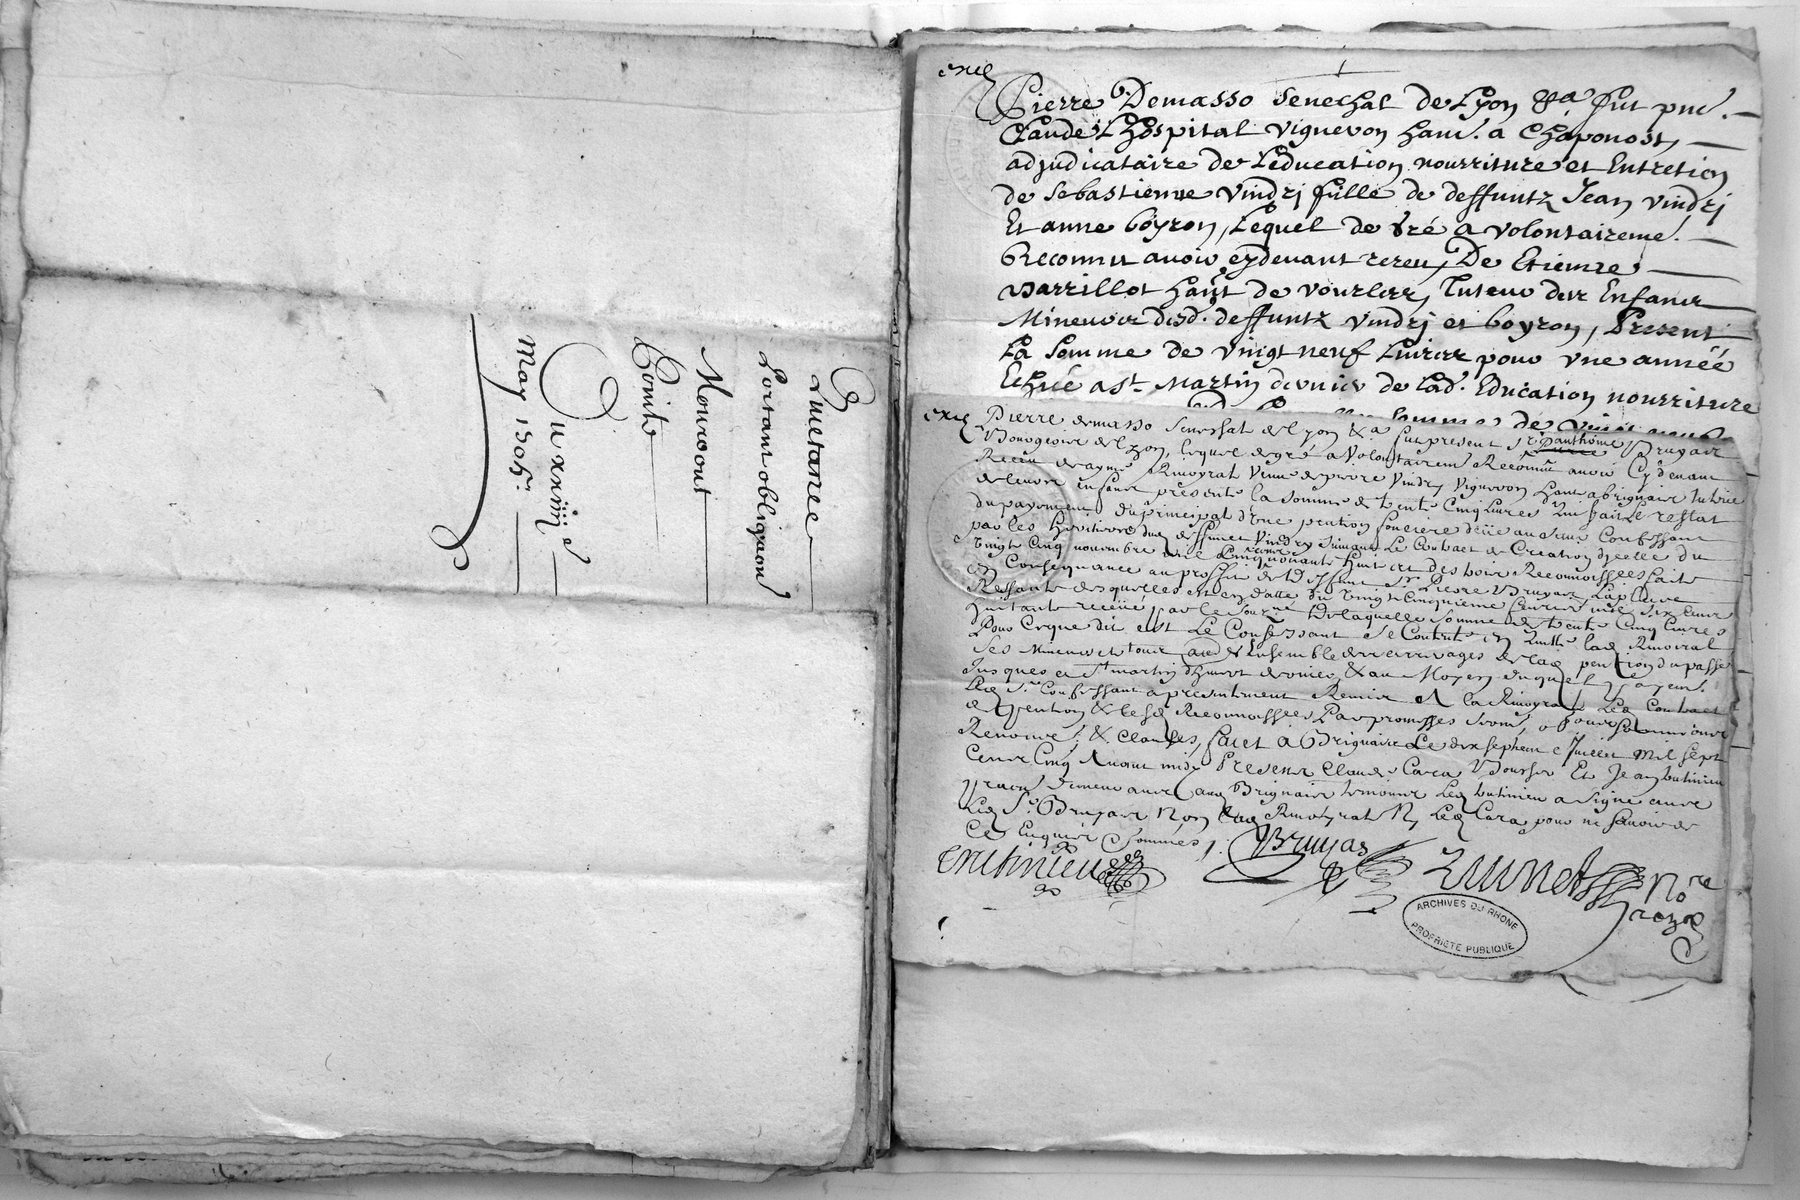 Quictance
Portant obligaon
Mourcout
Pointe
Du xxiiije
May 1705.
exp
Pierre Demasso Senechal de Lyon &a fut pnt.
Claude Lhospital vigneron hant. a Chaponost,
adjudicataire de Leducation nourriture et Entretien
de Sebastienne vindrj fille de deffuntz Jean vindrj
Et anne boyron, Lequel de gré a volontaireme.
Reconnu avoir cydevant receu, De Etienne
Varrillot hant de vourles, Tuteur des Enfans
Mineurs desd. deffuntz vindrj et boyron, Present
La Somme de vingt neuf Livres pour une année
Echuë a st. Martin dernier de lad. Education nourriture
exp
Pierre demasso Senechal de Lyon &a fut present Sr Panthome Bruyas
Bourgeois de Lyon, Lequel de gré a Volontairemt Reconnu avoir Cydevant
Receu de aymé Rimoyrat veuve de pierre Vindry Vigneron hant a brignais tutrice
de leurs enfans presente la Somme de trente Cinq Livres Luy fait Le restat
du payement du principal d'une pention fonciere düe aud Sieur Confessant
par les heritiers dud deffunct Vindry Suivant Le Contract de Creation dycelle du
vingt Cinq novembre mil Cinquante huit et des trois Reconnoissées faite
en Consequance au proffit de deffunt Sr. Pierre Bruyas Laplasse
Restante desquelles est en datte du vingt Cinquieme feuvrier mil six Cens
huitante receüe par le Soubzné De laquelle Somme de trente Cinq Livres
Pour Ceque dit est Le Confessant Se Contente en quitte lad Rimoirat
Ses Mineurs et tous aud Ensemble des arrerages de lad pention du passé
Jusques a st martin dhivert dernier, & au Moyen duquel payemt.
Led Sr. Confessant a presentement Remis A la Rimoyrat Led Contract
de pention & lesd Reconnoissées Par promesses serm,
Renonce, & Clauses, fait A Brignais Le dix septieme Juillet Mil Sept
Cens Cinq Avant midy Presens Claude Cara Et Jean butinieu
demeurans aud Brignais temoins Led butinieu a Signé avec
Led Sr. Bruyas Non lad Rimoyrat Ny Led Cara pour ne Scavoir de
Ce Enquis & Sommés.
Butinieu
Bruyas
No.re
ARCHIVES DU RHONE
PROPRIÉTÉ PUBLIQUE